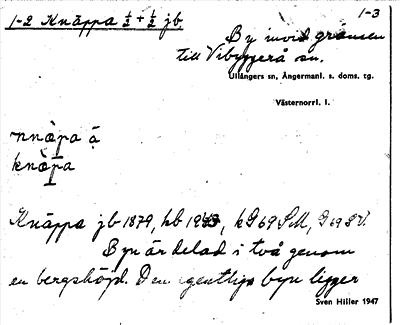 1-2 Knäppa ½ + ½ jb
1-3
By invid gränsen
till Vibyggerå sn.
Ullångers sn, Ångermanl. s. doms. tg.
Västernorrl. l.
knäpa
Knäppa jb 1879, kb 1943, kG 69 SM, G 69 SV.
Byn är delad i två genom
en bergshöjd. Den egentliga byn ligger
Sven Hiller 1947